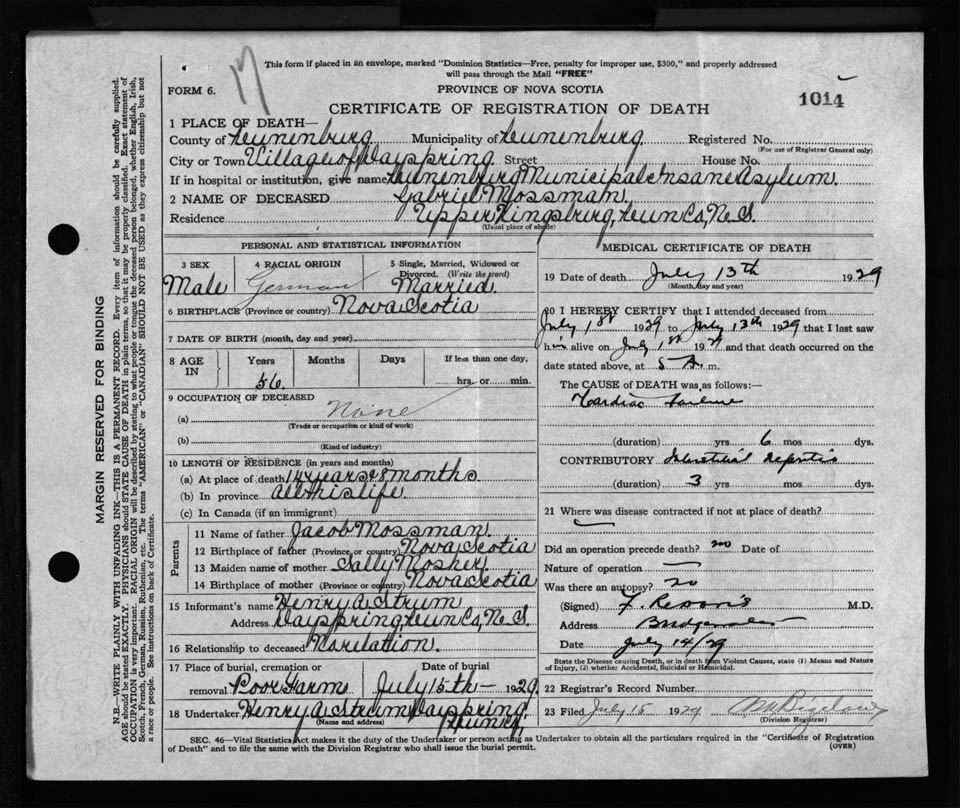 17
This form if placed in an envelope, marked "Dominion Statistics—Free, penalty for improper use, $300," and properly addressed
will pass through the Mail "FREE"
FORM 6.
PROVINCE OF NOVA SCOTIA
1014
CERTIFICATE OF REGISTRATION OF DEATH
1 PLACE OF DEATH—
County of Lunenburg Municipality of Lunenburg Registered No.
(For use of Registrar General only)
City or Town Village of Dayspring Street House No.
If in hospital or institution, give name Lunenburg Municipal Insane Asylum.
2 NAME OF DECEASED Gabriel Mossmam.
Residence Upper Kingsburg, Lun Co, N. S.
(Usual place of abode)
PERSONAL AND STATISTICAL INFORMATION
3 SEX Male
4 RACIAL ORIGIN German
5 Single, Married, Widowed or Divorced. (Write the word) Married.
6 BIRTHPLACE (Province or country) Nova Scotia
7 DATE OF BIRTH (month, day and year)
8 AGE IN Years Months Days If less than one day,
56. hrs. or min.
9 OCCUPATION OF DECEASED
(a) None
(Trade or occupation or kind of work)
(b)
(Kind of industry)
10 LENGTH OF RESIDENCE (in years and months)
(a) At place of death 14 years & 8 months.
(b) In province all this life.
(c) In Canada (if an immigrant)
Parents
11 Name of father Jacob Mossman.
12 Birthplace of father (Province or country) Nova Scotia
13 Maiden name of mother Sally Mosher.
14 Birthplace of mother (Province or country) Nova Scotia
15 Informant's name Henry A. Strum
Address Dayspring, Lun Co, N. S.
16 Relationship to deceased No relation.
17 Place of burial, cremation or removal Poor Farm Date of burial July 15th — 1929.
18 Undertaker Henry A. Strum Dayspring
(Name and address)
MEDICAL CERTIFICATE OF DEATH
19 Date of death July 13th 1929
(Month, day and year)
20 I HEREBY CERTIFY that I attended deceased from
July 1st 1929 to July 13th 1929 that I last saw
him alive on July 1st 1929 and that death occurred on the
date stated above, at 5 A. m.
The CAUSE of DEATH was as follows:—
Cardiac Failure
(duration) yrs 6 mos dys.
CONTRIBUTORY Interstitial
(duration) 3 yrs mos dys.
21 Where was disease contracted if not at place of death?
Did an operation precede death? no Date of
Nature of operation
Was there an autopsy? no
(Signed) M.D.
Address Bridgewater
Date July 14/29
State the Disease causing Death, or in death from Violent Causes, state (1) Means and Nature
of Injury, (2) whether Accidental, Suicidal or Homicidal.
22 Registrar's Record Number
23 Filed July 15 1929 Bigelow
(Division Registrar)
SEC. 46—Vital Statistics Act makes it the duty of the Undertaker or person acting as Undertaker to obtain all the particulars required in the "Certificate of Registration
of Death" and to file the same with the Division Registrar who shall issue the burial permit.
(OVER)
MARGIN RESERVED FOR BINDING
N.B.—WRITE PLAINLY WITH UNFADING INK—THIS IS A PERMANENT RECORD. Every item of information should be carefully supplied.
AGE should be stated EXACTLY. PHYSICIANS should STATE CAUSE OF DEATH in plain terms, so that it may be properly classified. Exact statement of
OCCUPATION is very important. RACIAL ORIGIN will be described by stating to what people or tongue the deceased person belonged, whether English, Irish,
Scotch, French, German, Russian, Ruthenian, etc. The terms "AMERICAN" or "CANADIAN" SHOULD NOT BE USED as they express citizenship but not
a race or people. See instructions on back of Certificate.